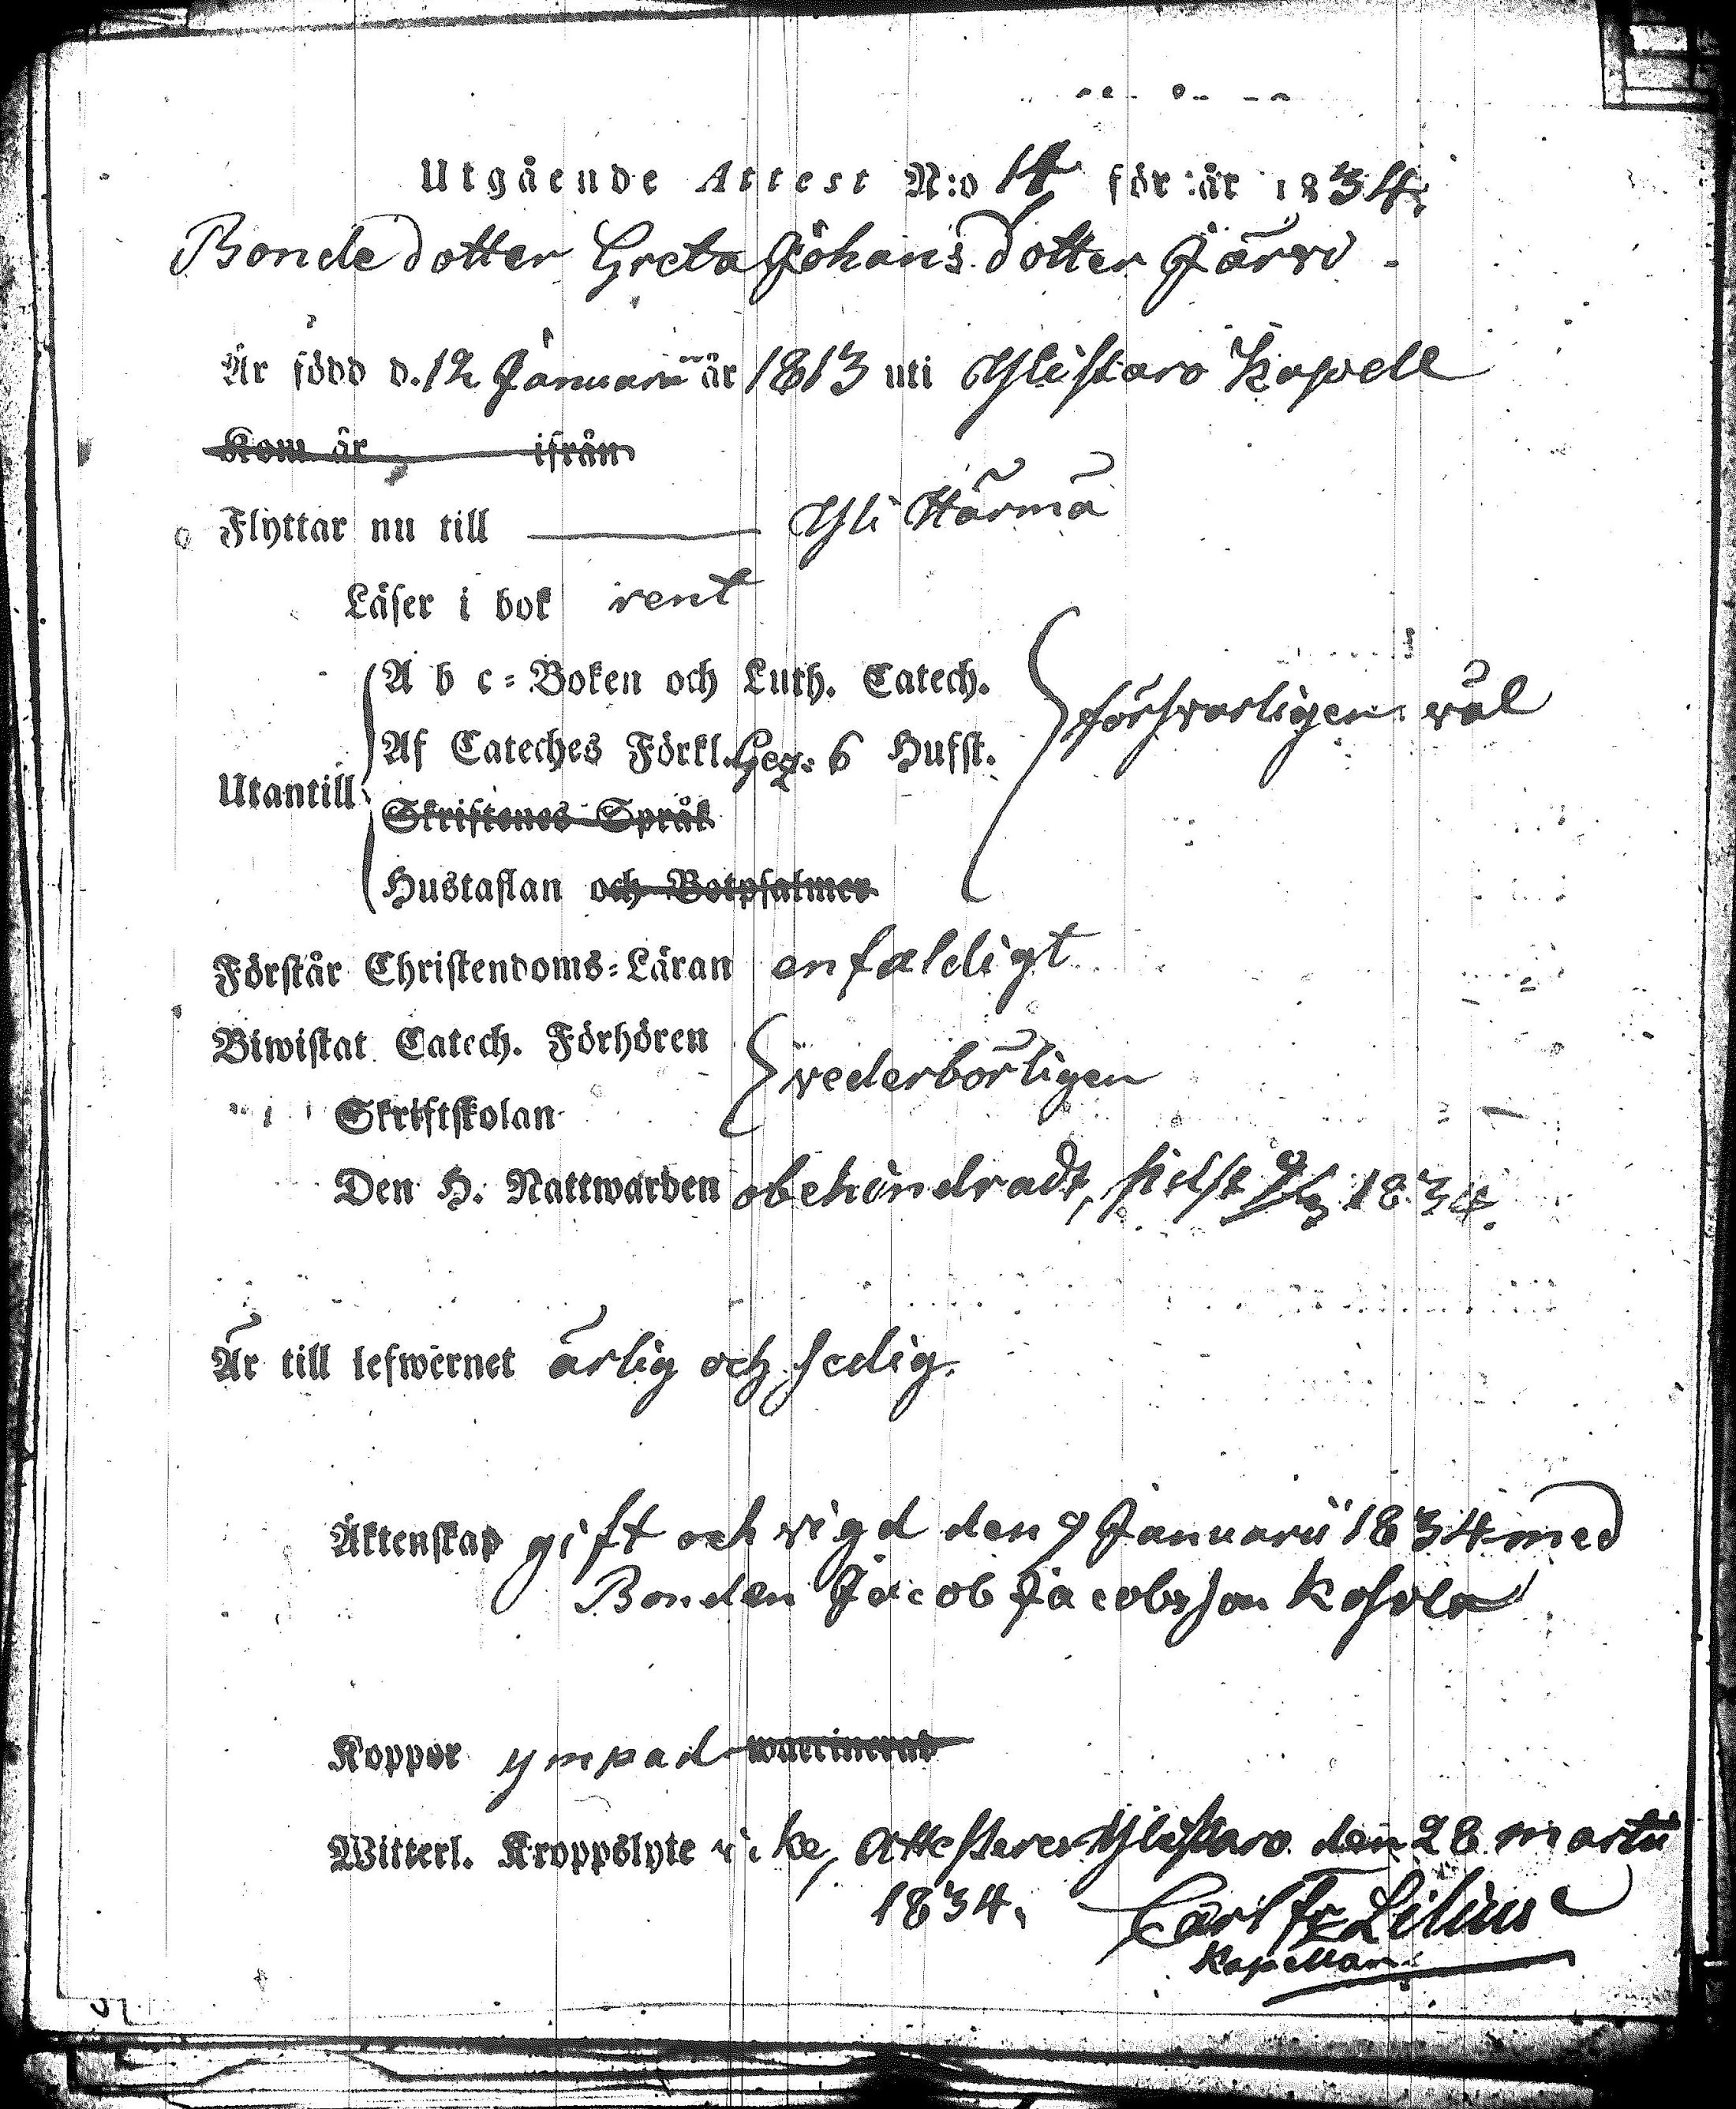 Utgående Attest N:o 14 för år 1834.
Bonde dotter Greta Johans dotter Järvi.
Är född d. 12 Januarii år 1813 uti Ylistaro Kapell
Kom år ifrån
Flyttar nu till Yli Härmä
Läser i bok rent
A b c-Boken och Luth. Catech.
försvarligen väl
Af Cateches Förkl. Gez. 6 Hufst.
Utantill
Skriftenes Språk
Hustaflan och Botpsalmer
Förstår Christendoms-Läran enfaldigt
Biwistat Catech. Förhören
vederbörligen
Skriftskolan
Den H. Nattwarden obehindradt, sidst 1834.
Är till lefwernet ärlig och sedig.
Äktenskap gift och vigd den 9 Januarii 1834 med
Bonden Jacob Jacobsson Kosola
Koppor ympad waccinerad
Witterl. Kroppslyte icke, Attesterer Ylistaro den 28 martii
1834. Carl Fr Lilius
Kapellan